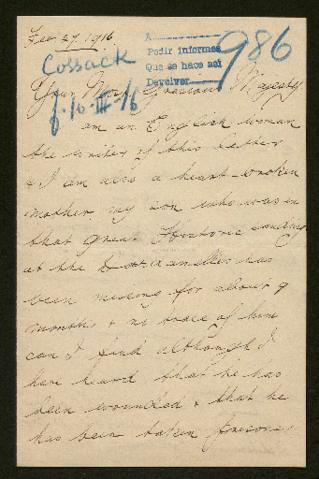 Fev 27. 1916
A
Pedir informes
Que se hace así
Devolver
986
Cossack
f. 10-III-16
Your Most Gracious Majesty
am an English woman
the writer of this letter
& I am also a heart-broken
mother, my son who was in
that great Historic landing
at the Dardanelles has
been missing for about 9
months & no trace of him
can I find although I
have heard that he has
been wounded & that he
has been taken prisoner